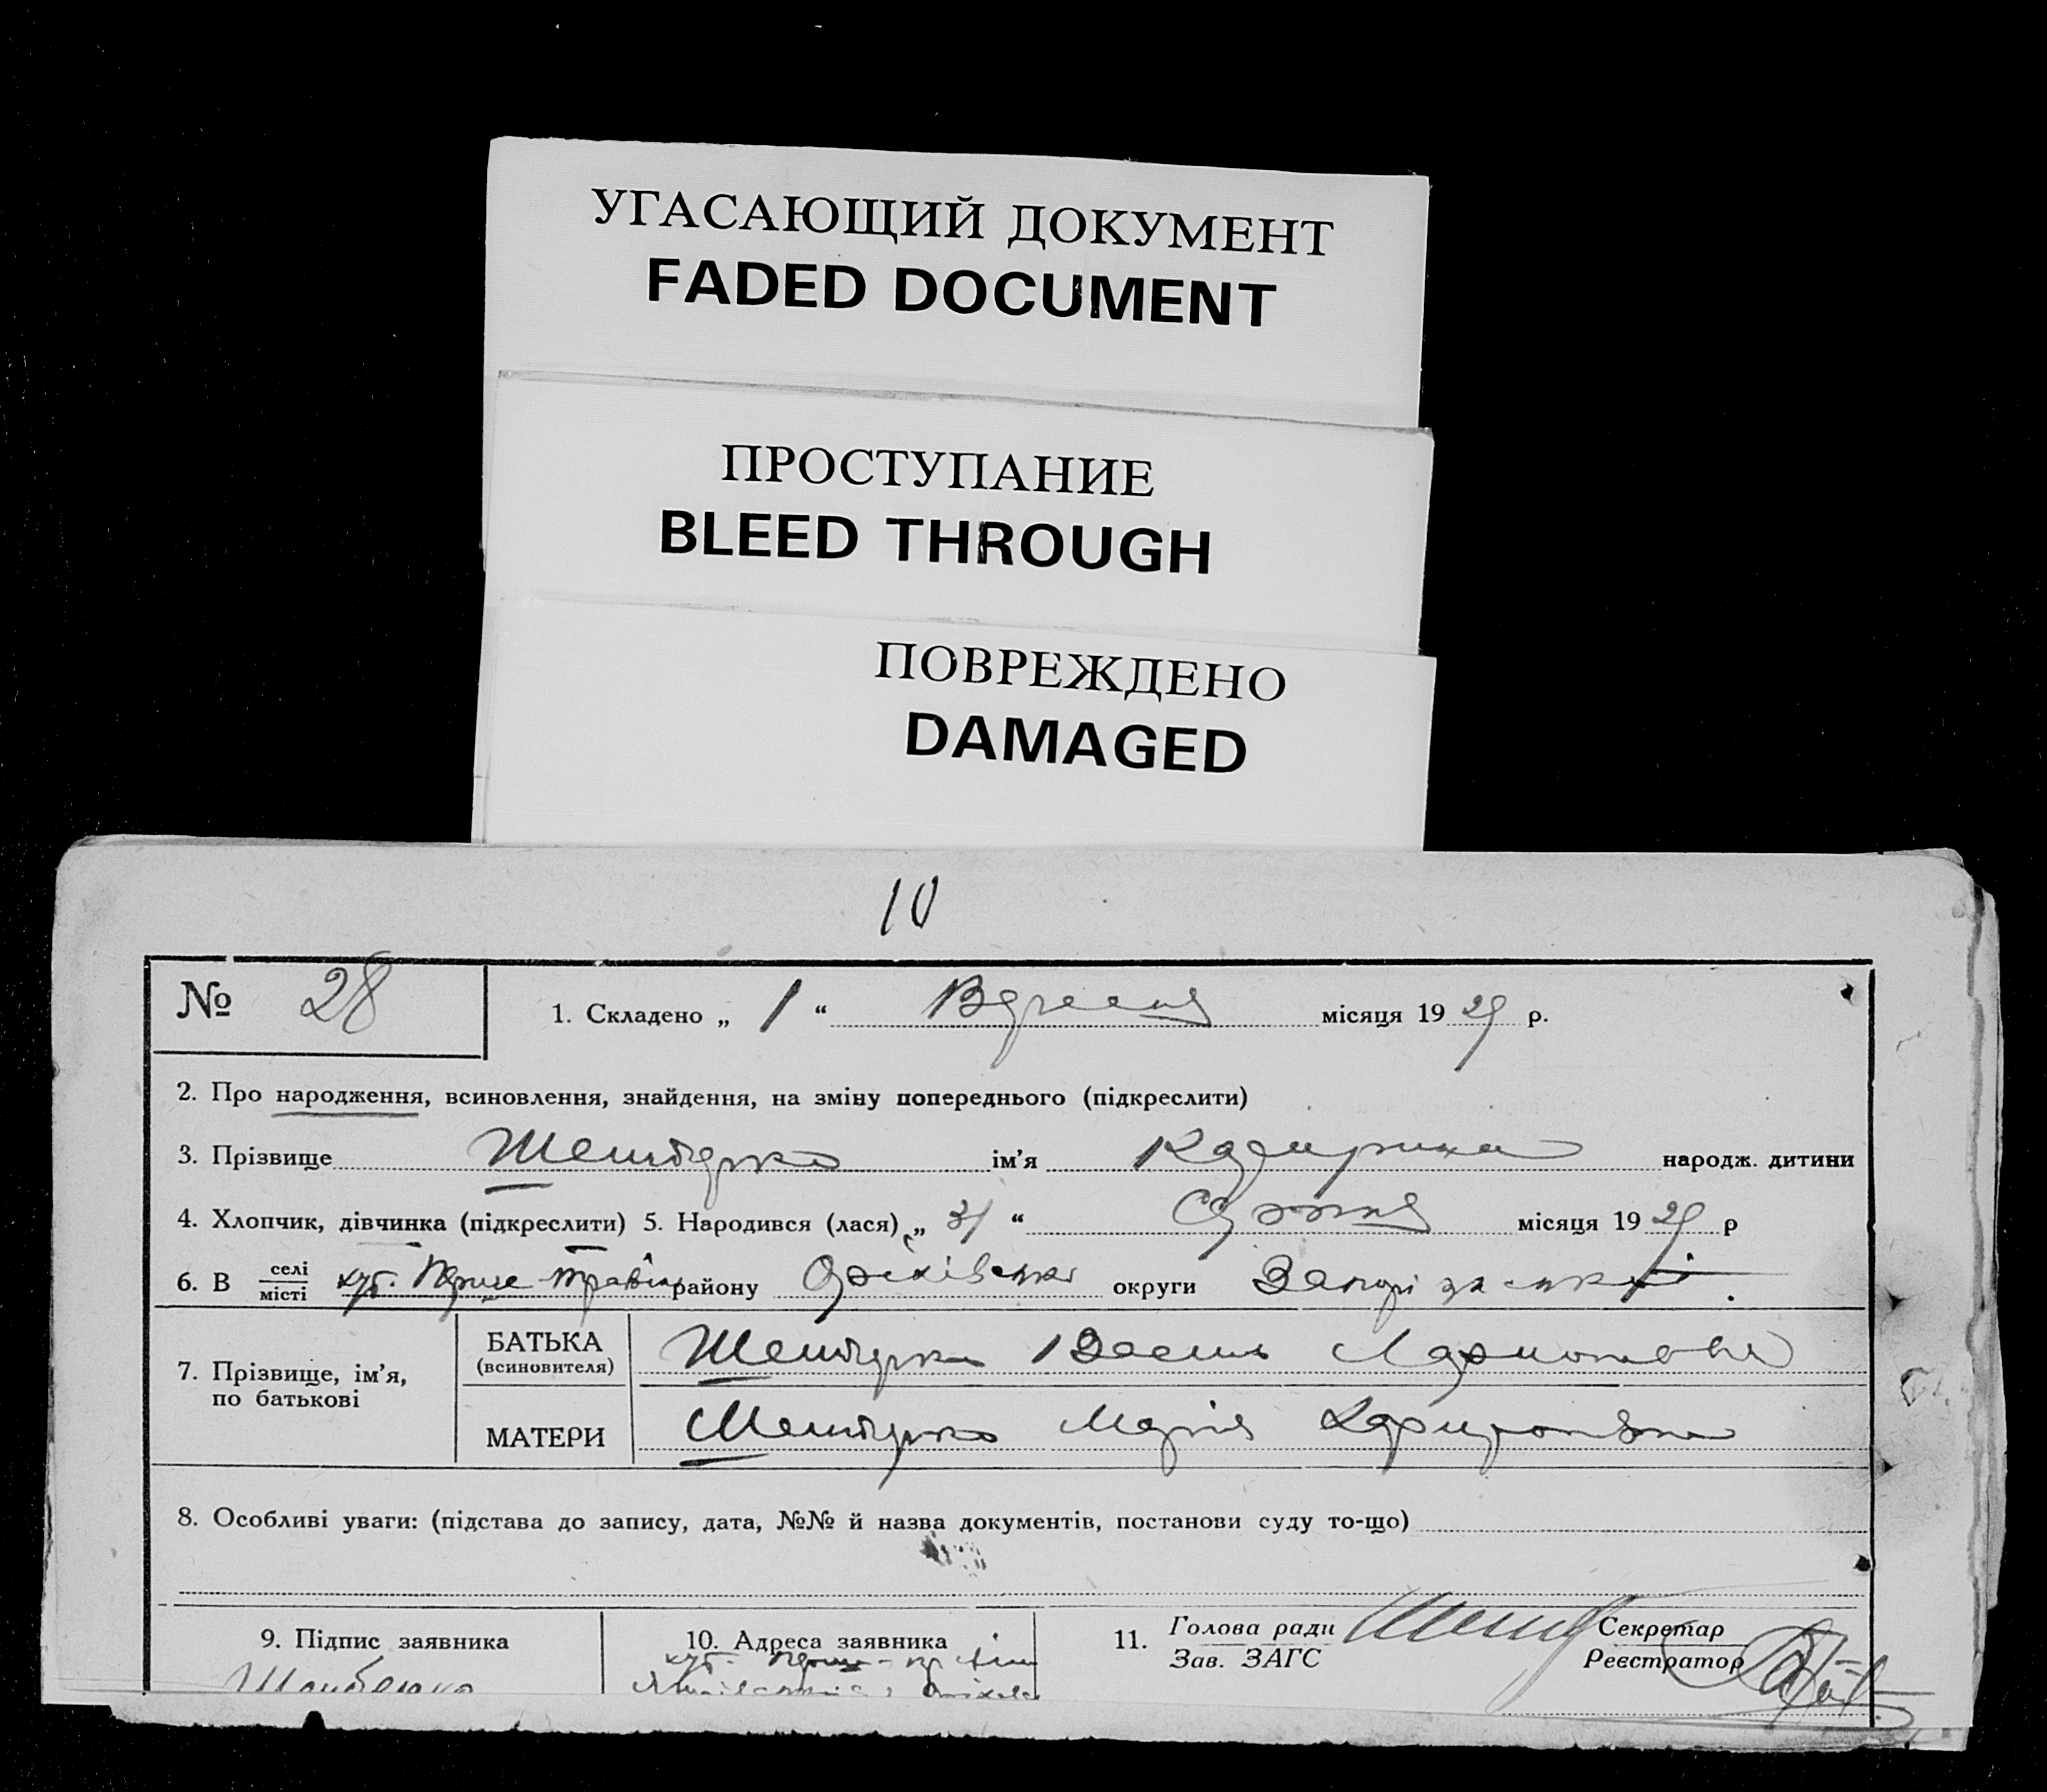 УГАСАЮЩИЙ ДОКУМЕНТ
FADED DOCUMENT
ПРОСТУПАНИЕ
BLEED THROUGH
ПОВРЕЖДЕНО
DAMAGED
10
№ 28
1. Складено „ 1 “ Вересня місяця 1929 р.
2. Про народження, всиновлення, знайдення, на зміну попереднього (підкреслити)
3. Прізвище ім’я Катерина народж. дитини
4. Хлопчик, дівчинка (підкреслити) 5. Народився (лася) „ 31 “ Серпня місяця 1929 р
6. В селі місті хут. Перше-травня району Оріхівськ округи Запорізької.
7. Прізвище, ім’я, по батькові
БАТЬКА (всиновителя) Василь
МАТЕРИ Марія
8. Особливі уваги: (підстава до запису, дата, №№ й назва документів, постанови суду то-що)
9. Підпис заявника
10. Адреса заявника
хут.
11. Голова ради Секретар
Зав. ЗАГС Реєстратор